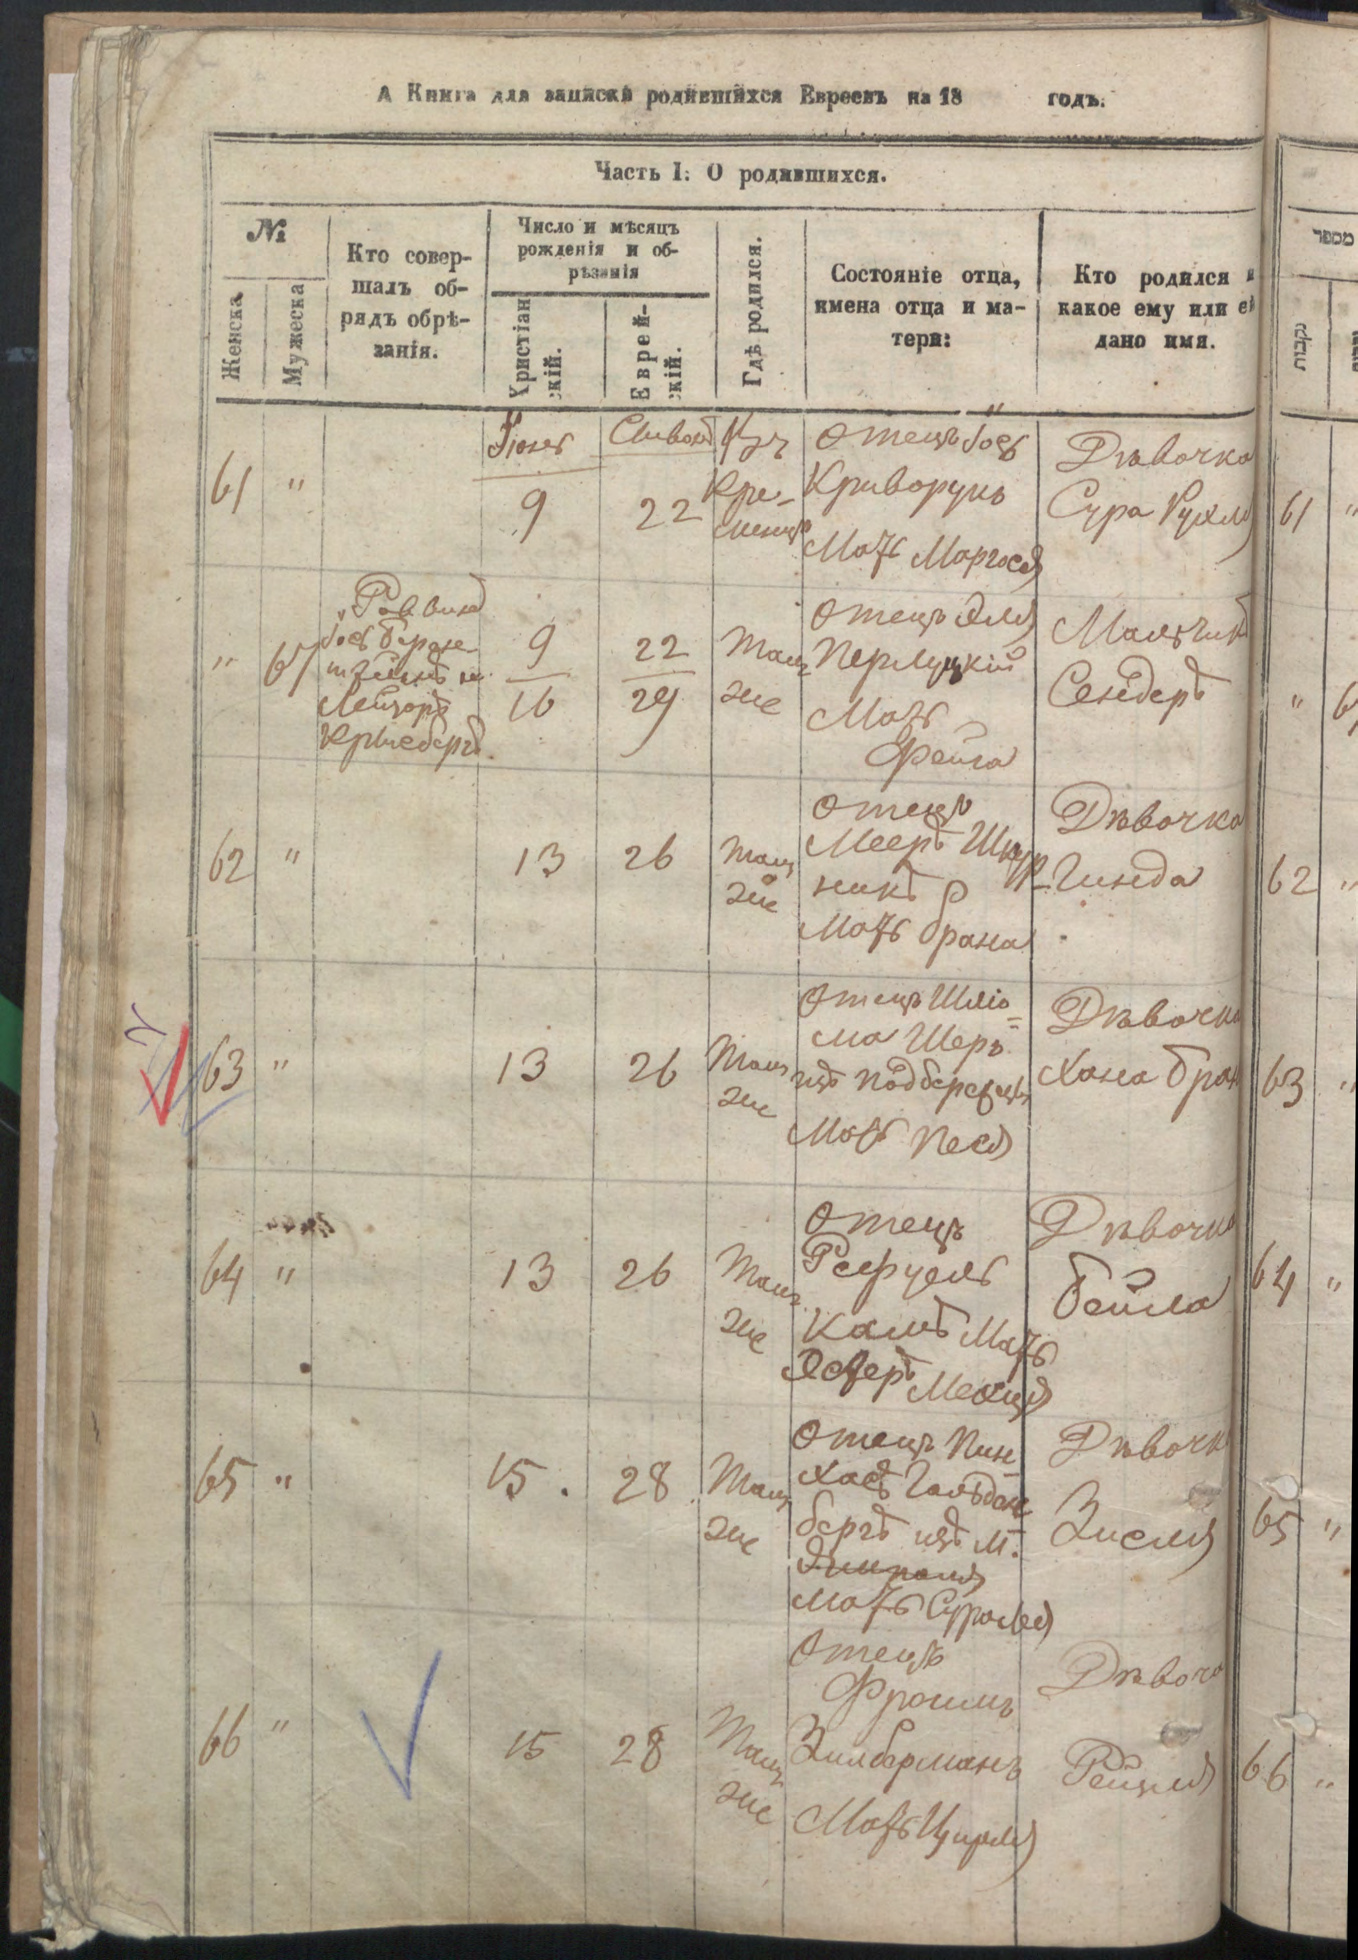 А Книга для записки родившихся Евреевъ на 18 годъ.
Часть I: О родившихся.
№
Женска
Мужеска
Кто совер-
шалъ об-
рядъ обрѣ-
занія.
Число и мѣсяцъ
рожденія и об-
рѣзанія
Христіан
скій.
Еврей-
скій.
Гдѣ родился.
Состояніе отца,
имена отца и ма-
тери:
Кто родился и
какое ему или ей
дано имя.
מספר
נקבות
61 "
9
22
Кре-
менцѣ
Отецъ
Криворукъ
Мать Маргося
Дѣвочка
Сура Рухля
61 "
"
Раввинъ
9
16
22
29
Там
же
Отецъ Эля
Перлуцкій
Мать
Фейга
Мальчикъ
Сендеръ
"
62 "
13
26
там
же
Отецъ
Мееръ
никъ
Мать Брана
Дѣвочка
Гинда
62 "
63 "
13
26
Там
же
Отецъ Шліо-
ма Шеръ
изъ Подберезецъ
Мать Песя
Дѣвочка
Хана Бран
63 "
64 "
13
26
Там
же
Отецъ
Рефуель
Мать
Эстеръ
Дѣвочка
Бейла
64 "
65 "
15.
28
Там
же
Отецъ Пин-
хасъ Гольден
бергъ изъ м.
Мать
Дѣвочк
Зисля
65 "
66 "
15
28
Там
же
Отецъ
Фроимъ
Зилберманъ
Мать Цирля
Дѣвоч
Рейзля
66 "